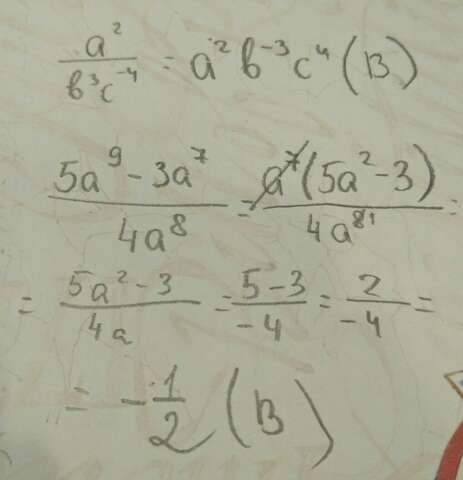 a²/в³c⁻⁴ = a²в⁻³c⁴ (В)
5a⁹-3a⁷/4a⁸ = a⁷(5a²-3)/4a⁸¹ =
= 5a²-3/4a = 5-3/-4 = 2/-4 =
= -1/2 (В)